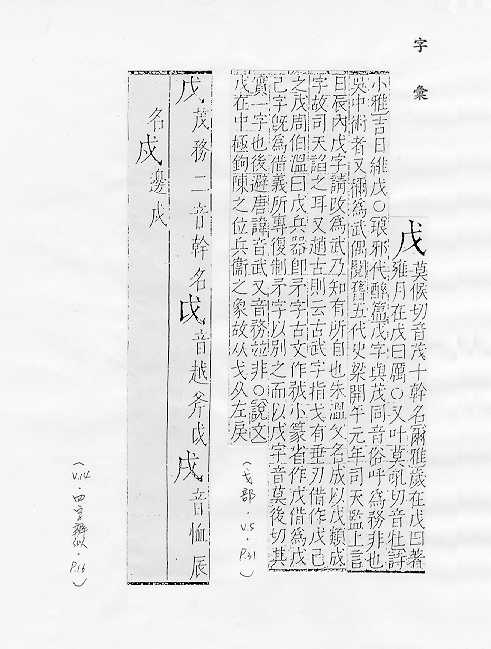 字彙
戊莫候切音茂十幹名爾雅歲在戊曰著
雍月在戊曰厲○又叶莫吼切音牡詩
小雅吉日維戊○琅邪代醉篇戊字與茂同音俗呼為務非也
吳中術者又稱為武偶閱舊五代史梁開平元年司天監上言
日辰內戊字請改為武乃知有所自也朱溫父名成以戊類成
字故司天諂之耳又趙古則云古武字指戈有垂刃借作戊己
之戊周伯溫曰戊兵器即矛字古文作𢦧小篆省作戊借為戊
己字旣為借義所專復制矛字以別之而以戊字音莫後切其
實一字也後避唐諱音武又音務竝非○說文
戊在中極鉤陳之位兵衞之象故从戈从左戾
(戈部．V.5．P.31)
戊茂務二音幹名戉音越斧戉戌音恤辰
名戍邊戍
(V.14．四字辨似．P.16)